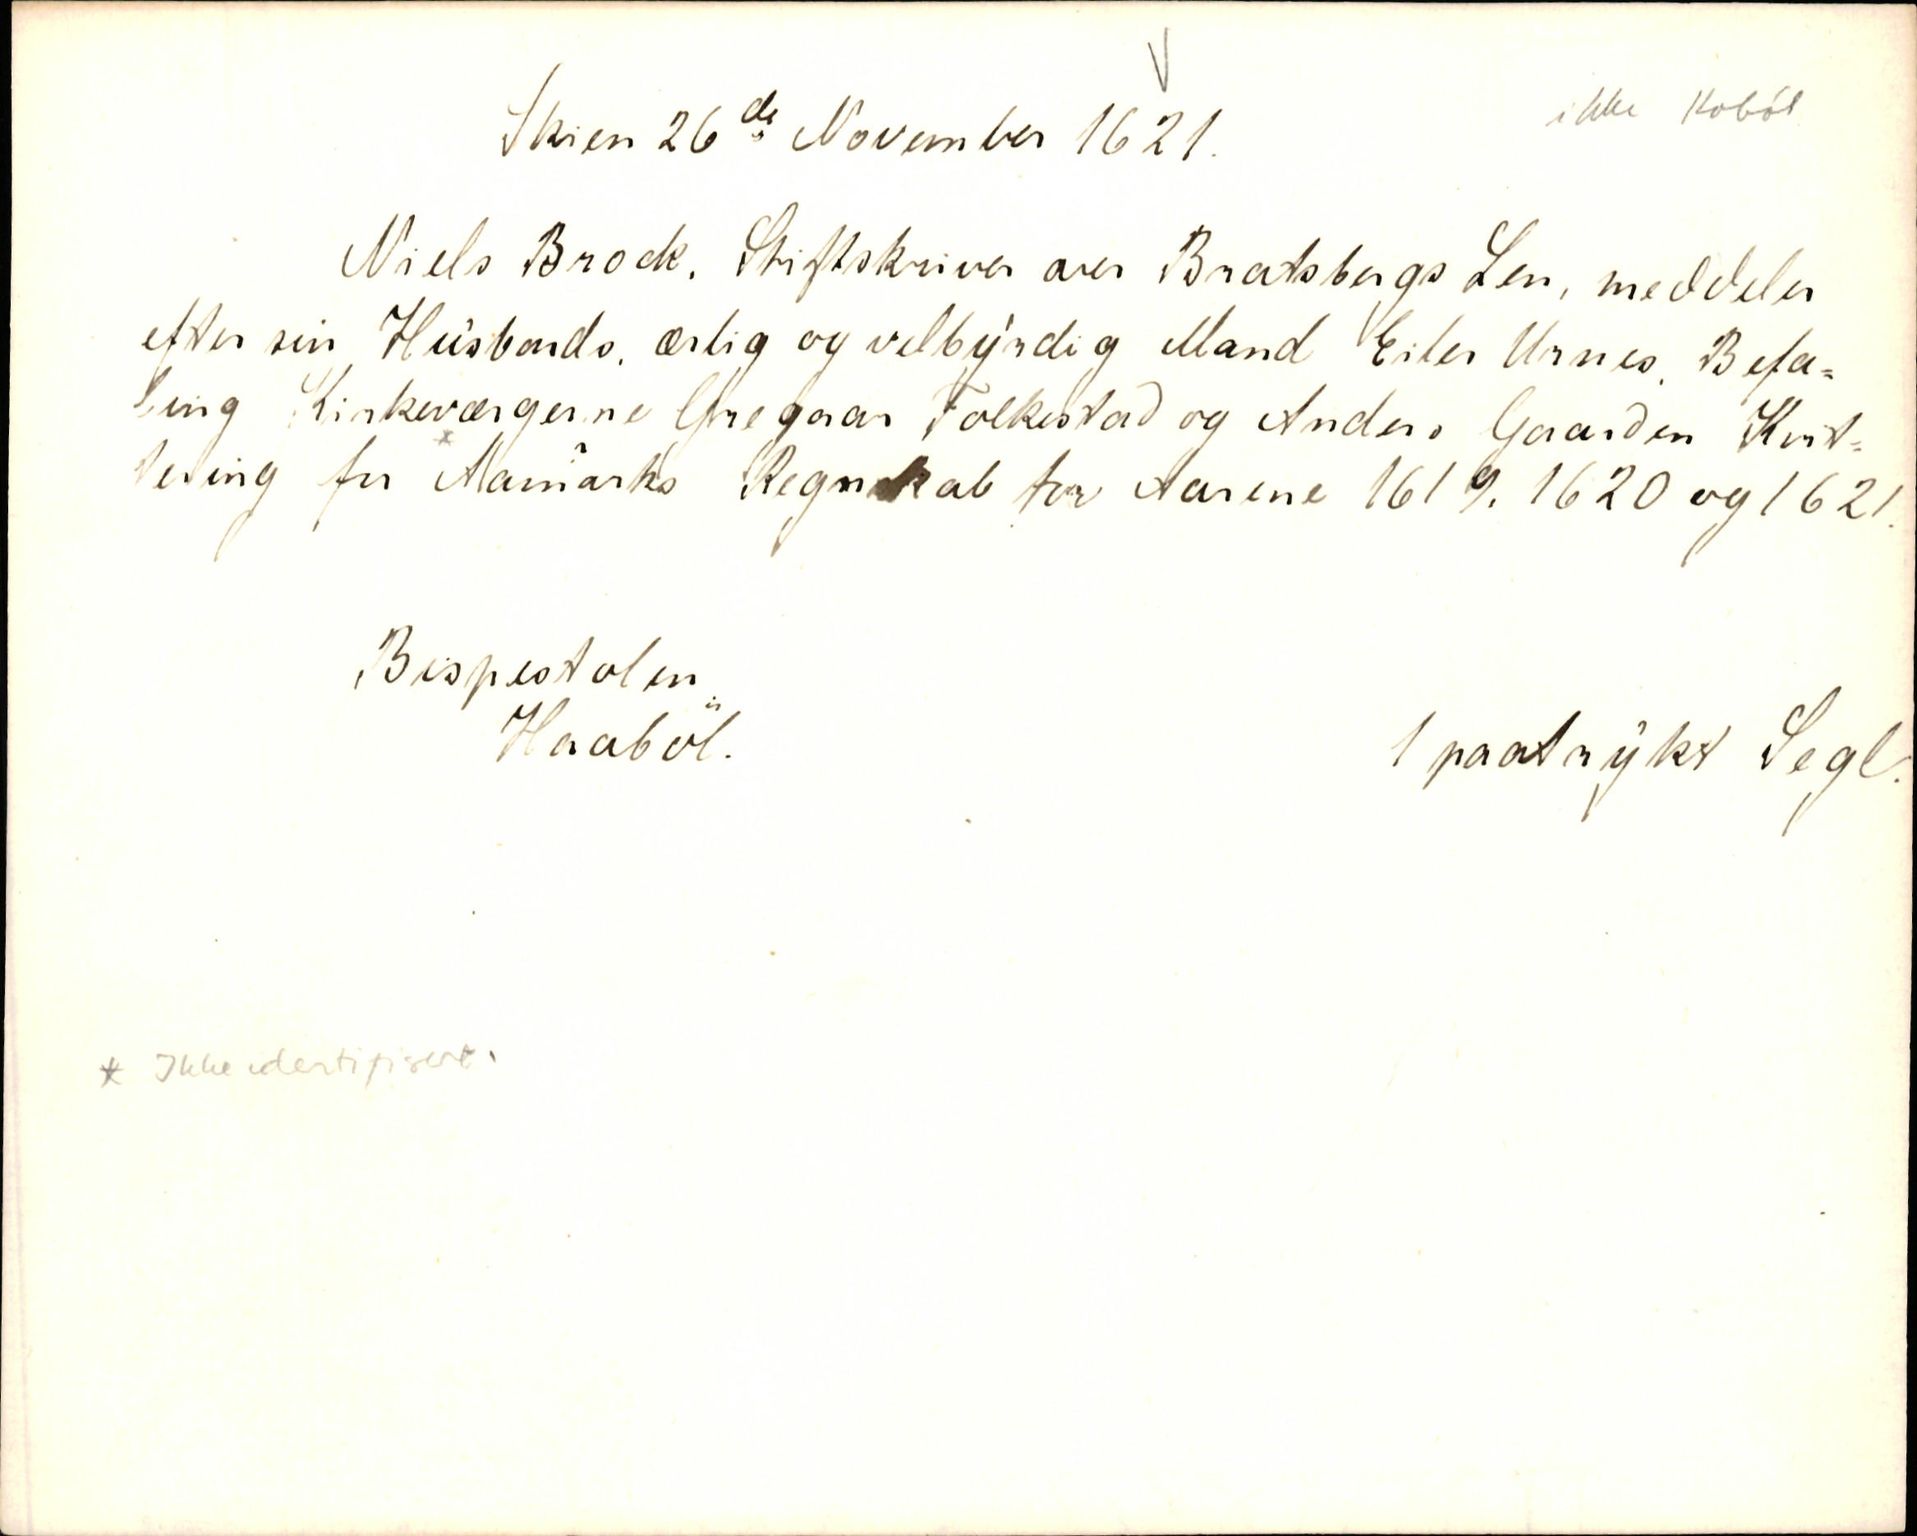 ikke Kobøl
Skien 26de November 1621.
Niels Brock, Stiftskriver over Bratsbergs Len, meddeler
efter sin Husbonds, ærlig og velbyrdig Mand Eiler Urnes, Befa-
ling Kirkeværgerne Gregaar Folkestad og Anders Gaarden Kvit-
tering for Aamarks* Regnskab for Aarene 1619, 1620 og 1621.
Bispestolen
Haaböl.
1 paatrykt Segl.
* Ikke identifisert.